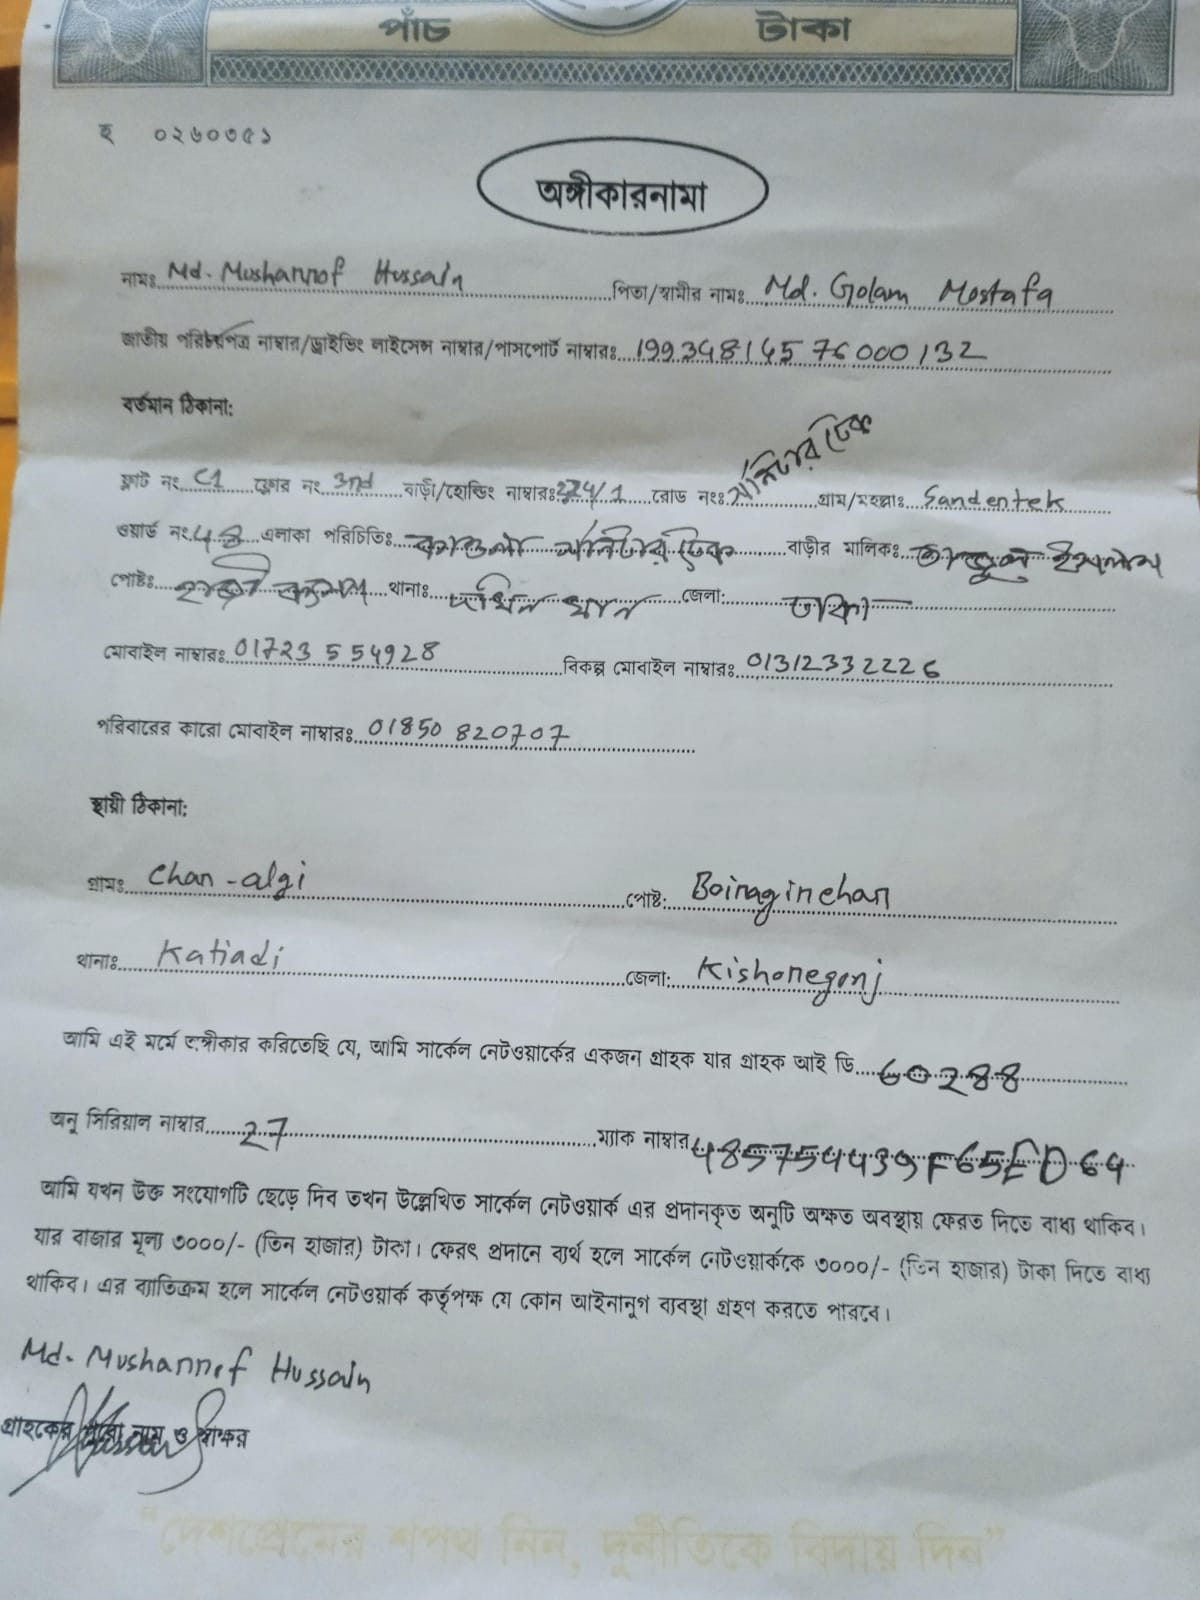 পাঁচ টাকা
হ ০২৬০৩৫১
অঙ্গীকারনামা
নামঃ Md. Mushannof Hussain পিতা/স্বামীর নামঃ Md. Golam Mostafa
জাতীয় পরিচয়পত্র নাম্বার/ড্রাইভিং লাইসেন্স নাম্বার/পাসপোর্ট নাম্বারঃ 19934814576000132
বর্তমান ঠিকানা:
ফ্লাট নং C1 ফ্লোর নং 3nd বাড়ী/হোল্ডিং নাম্বারঃ 274/1 রোড নংঃ গ্রাম/মহল্লাঃ Sandentek
ওয়ার্ড নং 48 এলাকা পরিচিতিঃ বাড়ীর মালিকঃ ইসলাম
পোষ্টঃ থানাঃ দক্ষিন খান জেলা: ঢাকা
মোবাইল নাম্বারঃ 01723554928 বিকল্প মোবাইল নাম্বারঃ 01312332226
পরিবারের কারো মোবাইল নাম্বারঃ 01850 820707
স্থায়ী ঠিকানা:
গ্রামঃ Chan-algi পোষ্ট: Boiraginchar
থানাঃ Katiadi জেলা: Kishoregonj
আমি এই মর্মে অঙ্গীকার করিতেছি যে, আমি সার্কেল নেটওয়ার্কের একজন গ্রাহক যার গ্রাহক আই ডি 60288
অনু সিরিয়াল নাম্বার 27 ম্যাক নাম্বার 485754439F65ED64
আমি যখন উক্ত সংযোগটি ছেড়ে দিব তখন উল্লেখিত সার্কেল নেটওয়ার্ক এর প্রদানকৃত অনুটি অক্ষত অবস্থায় ফেরত দিতে বাধ্য থাকিব।
যার বাজার মূল্য ৩০০০/- (তিন হাজার) টাকা। ফেরৎ প্রদানে ব্যর্থ হলে সার্কেল নেটওয়ার্ককে ৩০০০/- (তিন হাজার) টাকা দিতে বাধ্য
থাকিব। এর ব্যাতিক্রম হলে সার্কেল নেটওয়ার্ক কর্তৃপক্ষ যে কোন আইনানুগ ব্যবস্থা গ্রহণ করতে পারবে।
Md. Mushannof Hussain
গ্রাহকের পুরো নাম ও স্বাক্ষর
“দেশপ্রেমের শপথ নিন, দুর্নীতিকে বিদায় দিন”